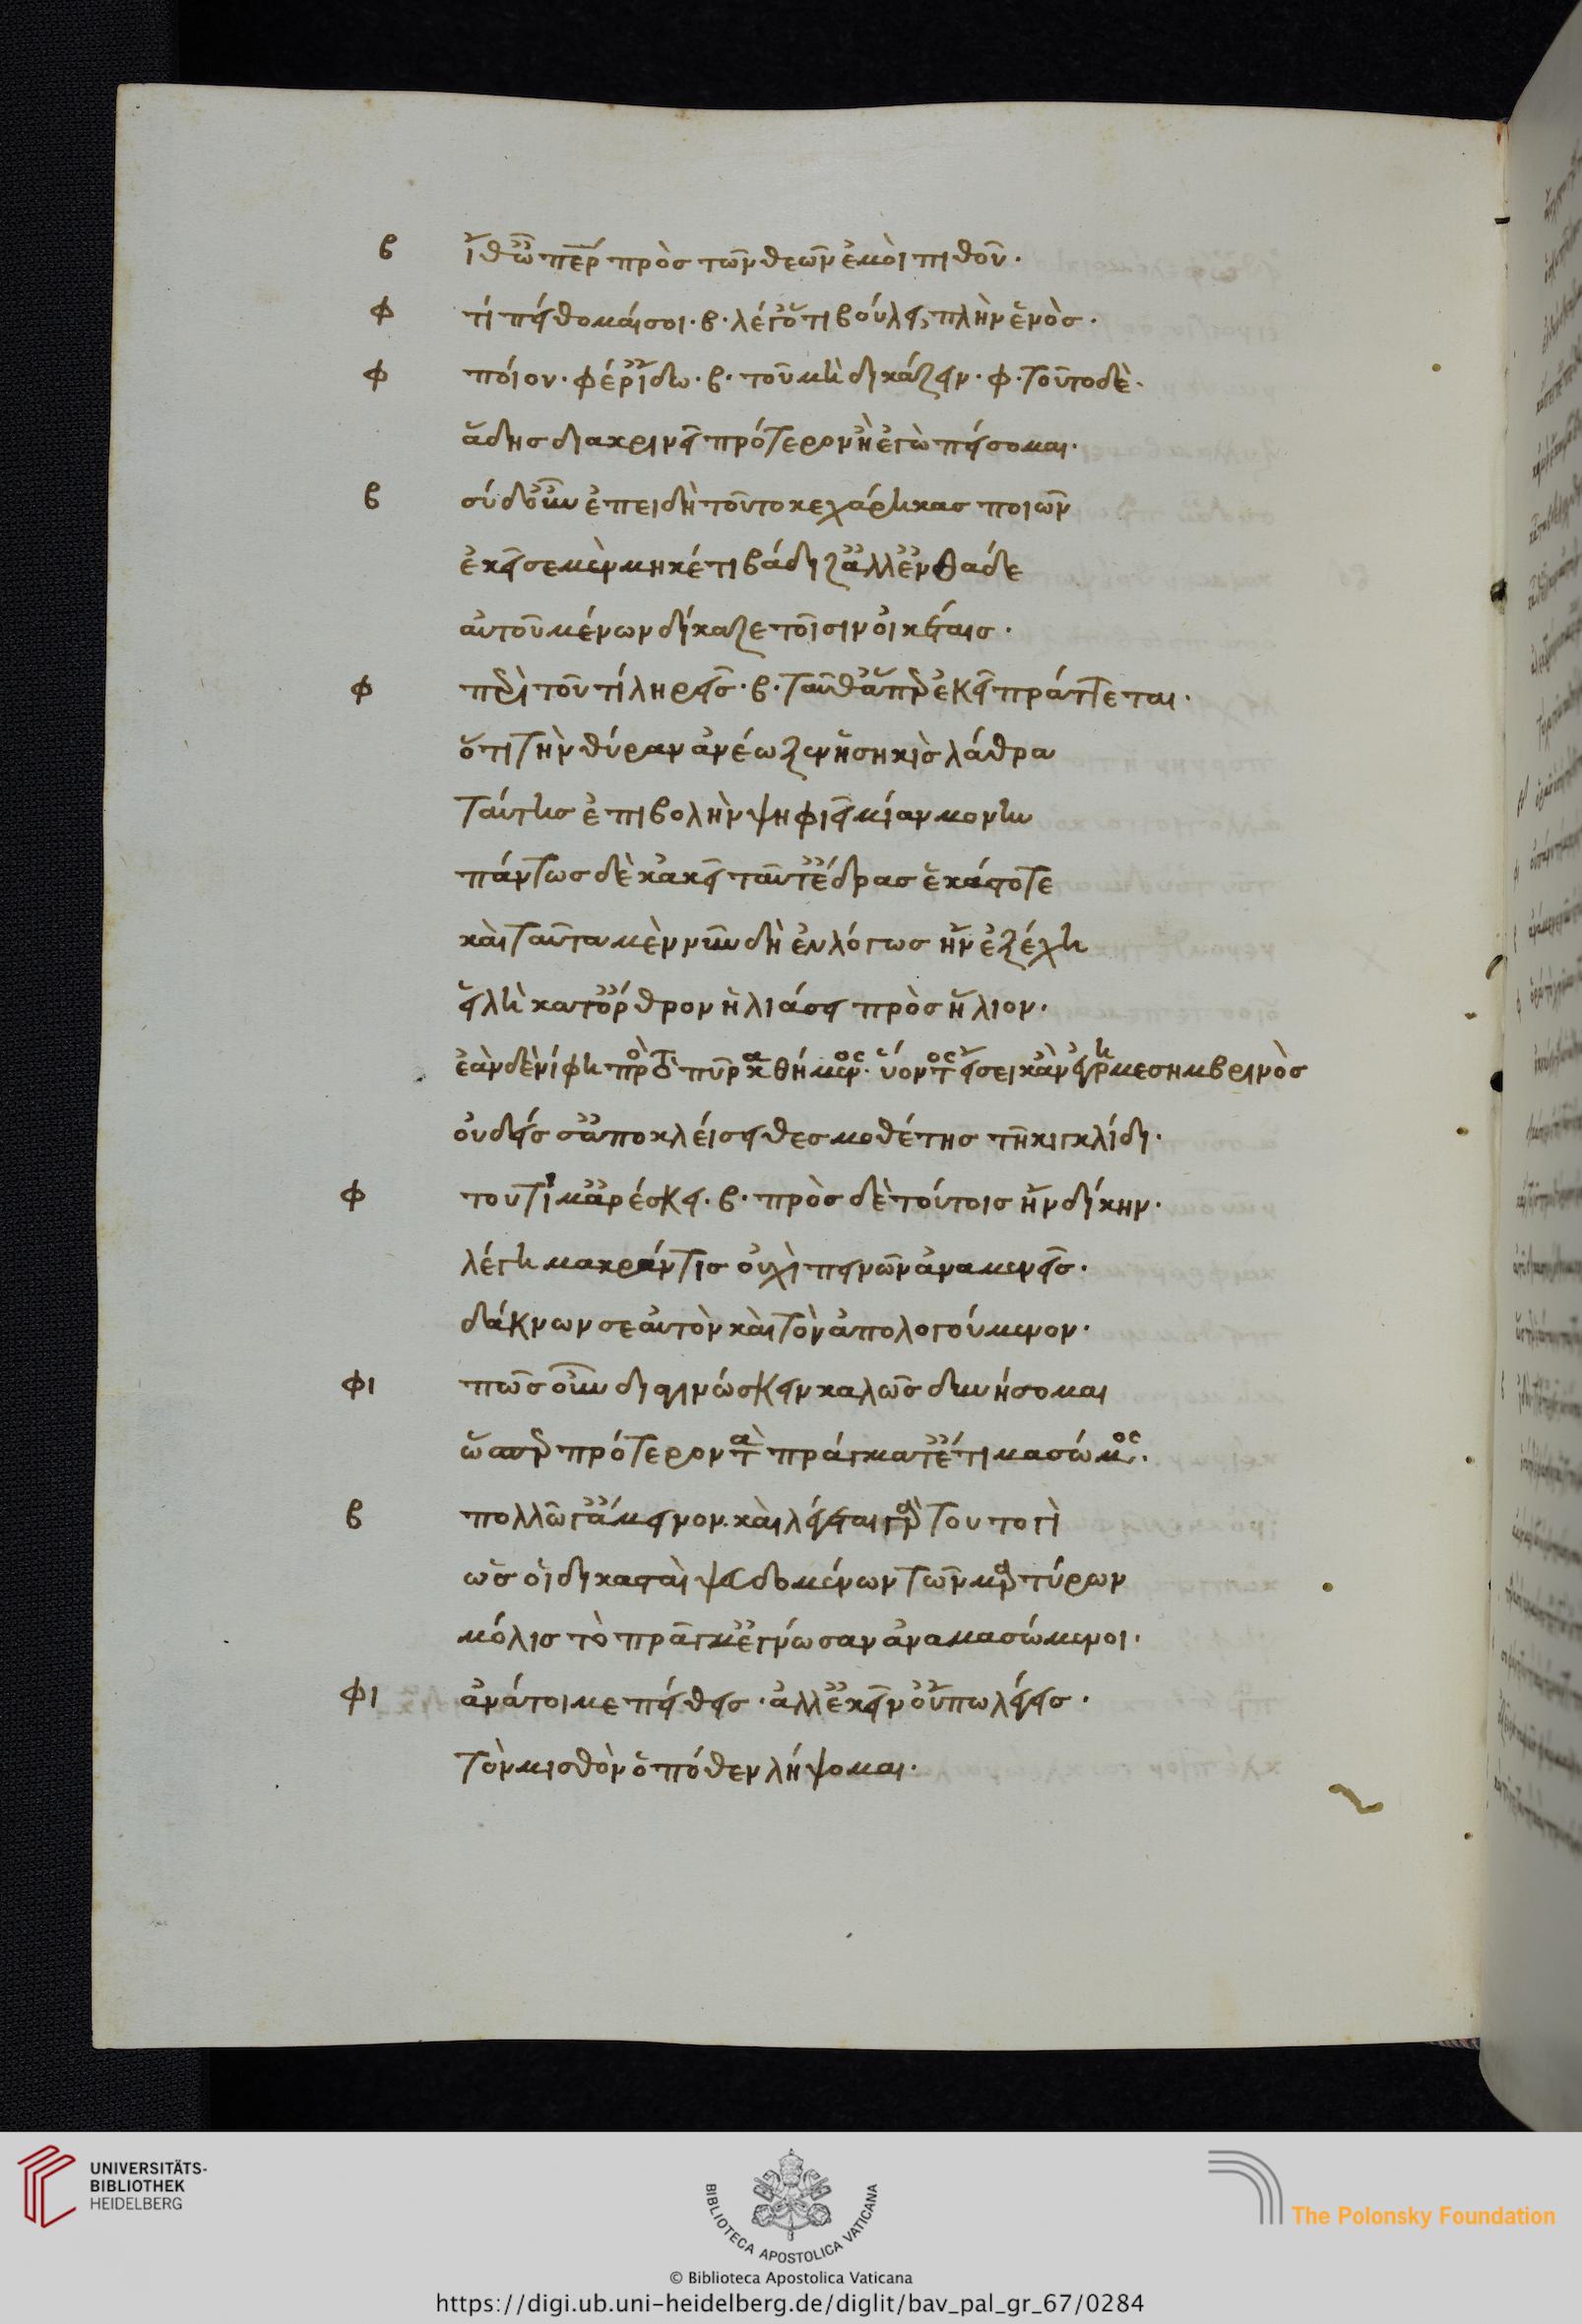 β ἴθ' ὦ πάτερ πρὸς τῶν θεῶν ἐμοὶ πιθοῦ.
φ τί πείθομαί σοι. β. λέγ' ὅτι βούλει, πλὴν ἑνὸς.
φ ποίου. φέρ' ἴδω. β. τοῦ μὴ δικάζειν. φ. τοῦτο δὲ.
ἅδης διακρινεῖ πρότερον ἢ ἐγὼ πείσομαι.
β σὺ δ' οὖν ἐπειδὴ τοῦτο κεχάρηκας ποιῶν
ἐκεῖσε μὲν μηκέτι βάδιζ' ἀλλ' ἐνθάδε
αὐτοῦ μένων δίκαζε τοῖσιν οἰκέταις.
φ περὶ τοῦ τί ληρεῖς. β. ταῦθ' ἅπερ ἐκεῖ πράττεται.
ὅτι τὴν θύραν ἀνέωξεν ἡ σηκὶς λάθρα
ταύτης ἐπιβολὴν ψηφιεῖ μίαν μόνην
πάντως δὲ κἀκεῖ ταῦτ' ἔδρας ἑκάστοτε
καὶ ταῦτα μὲν νῦν δὴ εὐλόγως ἢν ἐξέχῃ
εἵλη κατ' ὄρθρον ἡλιάσει πρὸς ἥλιον.
ἐὰν δὲ νίφῃ πρὸς τὸ πῦρ καθήμενος. ὕοντος εἴσει κἂν ἔγρῃ μεσημβρινὸς
οὐδείς σ' ἀποκλείσει θεσμοθέτης τῇ κιγκλίδι.
φ τουτί μ' ἀρέσκει. β. πρὸς δὲ τούτοις ἢν δίκην.
λέγῃ μακράν τις οὐχὶ πεινῶν ἀναμενεῖς.
δάκνων σεαυτὸν καὶ τὸν ἀπολογούμενον.
φι πῶς οὖν διαγινώσκειν καλῶς δυνήσομαι
ὥσπερ πρότερον τὰ πράγματ' ἔτι μασώμενος.
β πολλῷ γ' ἄμεινον. καὶ λέγεται γὰρ τουτογὶ
ὡς οἱ δικασταὶ ψευδομένων τῶν μαρτύρων
μόλις τὸ πρᾶγμ' ἔγνωσαν ἀναμασώμενοι.
φι ἀνά τοί με πείθεις. ἀλλ' ἐκεῖν' οὔπω λέγεις.
τὸν μισθὸν ὁπόθεν λήψομαι.
UNIVERSITÄTS-
BIBLIOTHEK
HEIDELBERG
BIBLIOTECA APOSTOLICA VATICANA
The Polonsky Foundation
© Biblioteca Apostolica Vaticana
https://digi.ub.uni-heidelberg.de/diglit/bav_pal_gr_67/0284